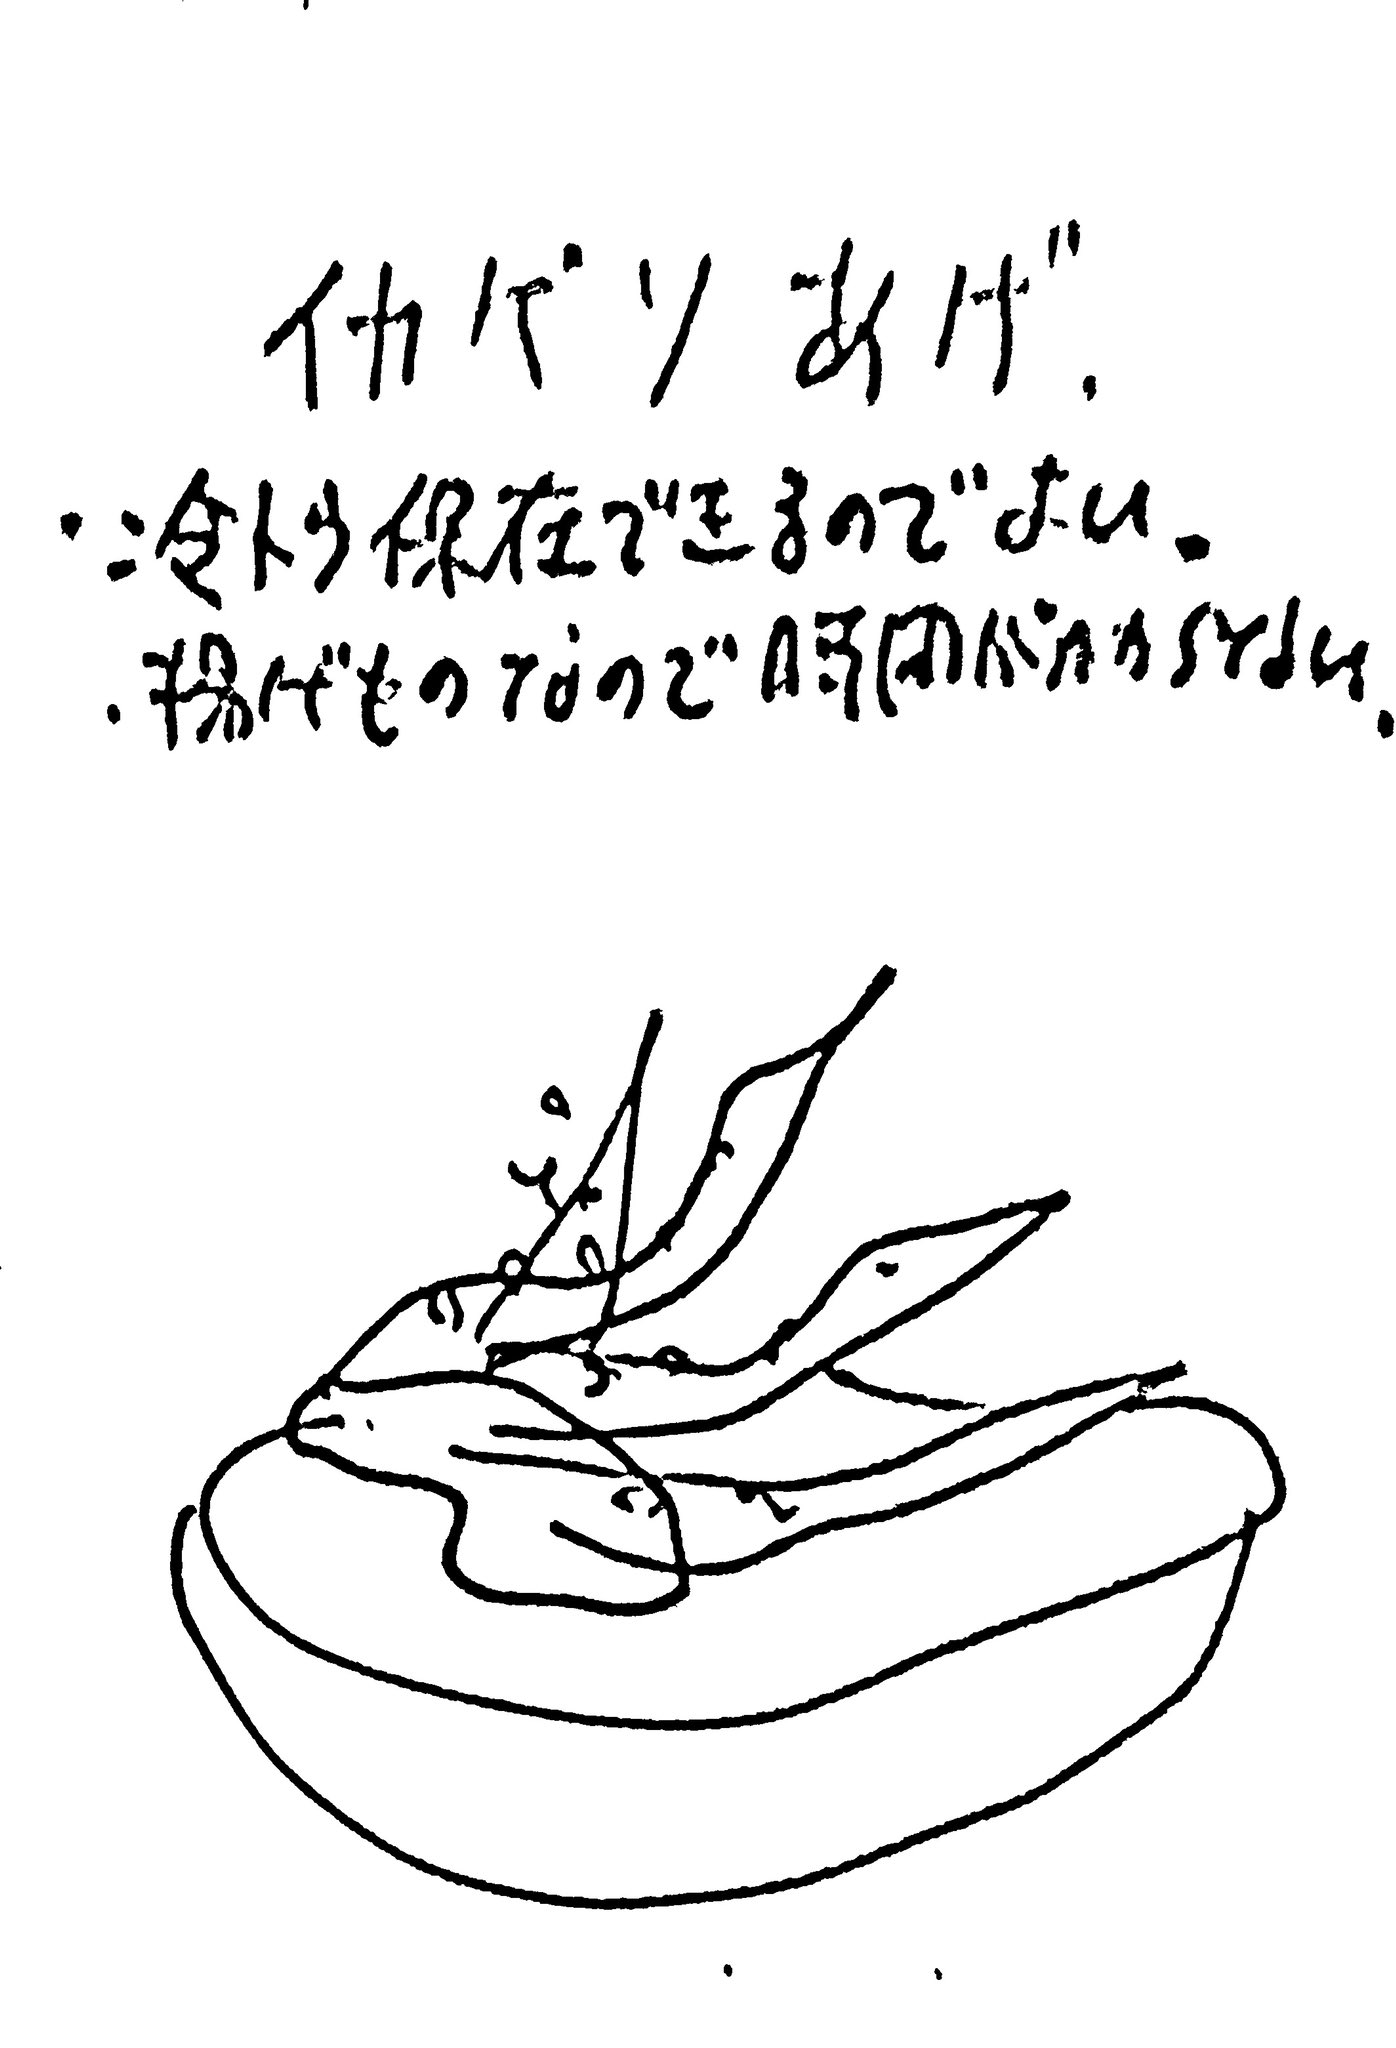 イカパリあげ.
・冷トウ保存できるのでよい。
・揚げものなので時間がかからない.